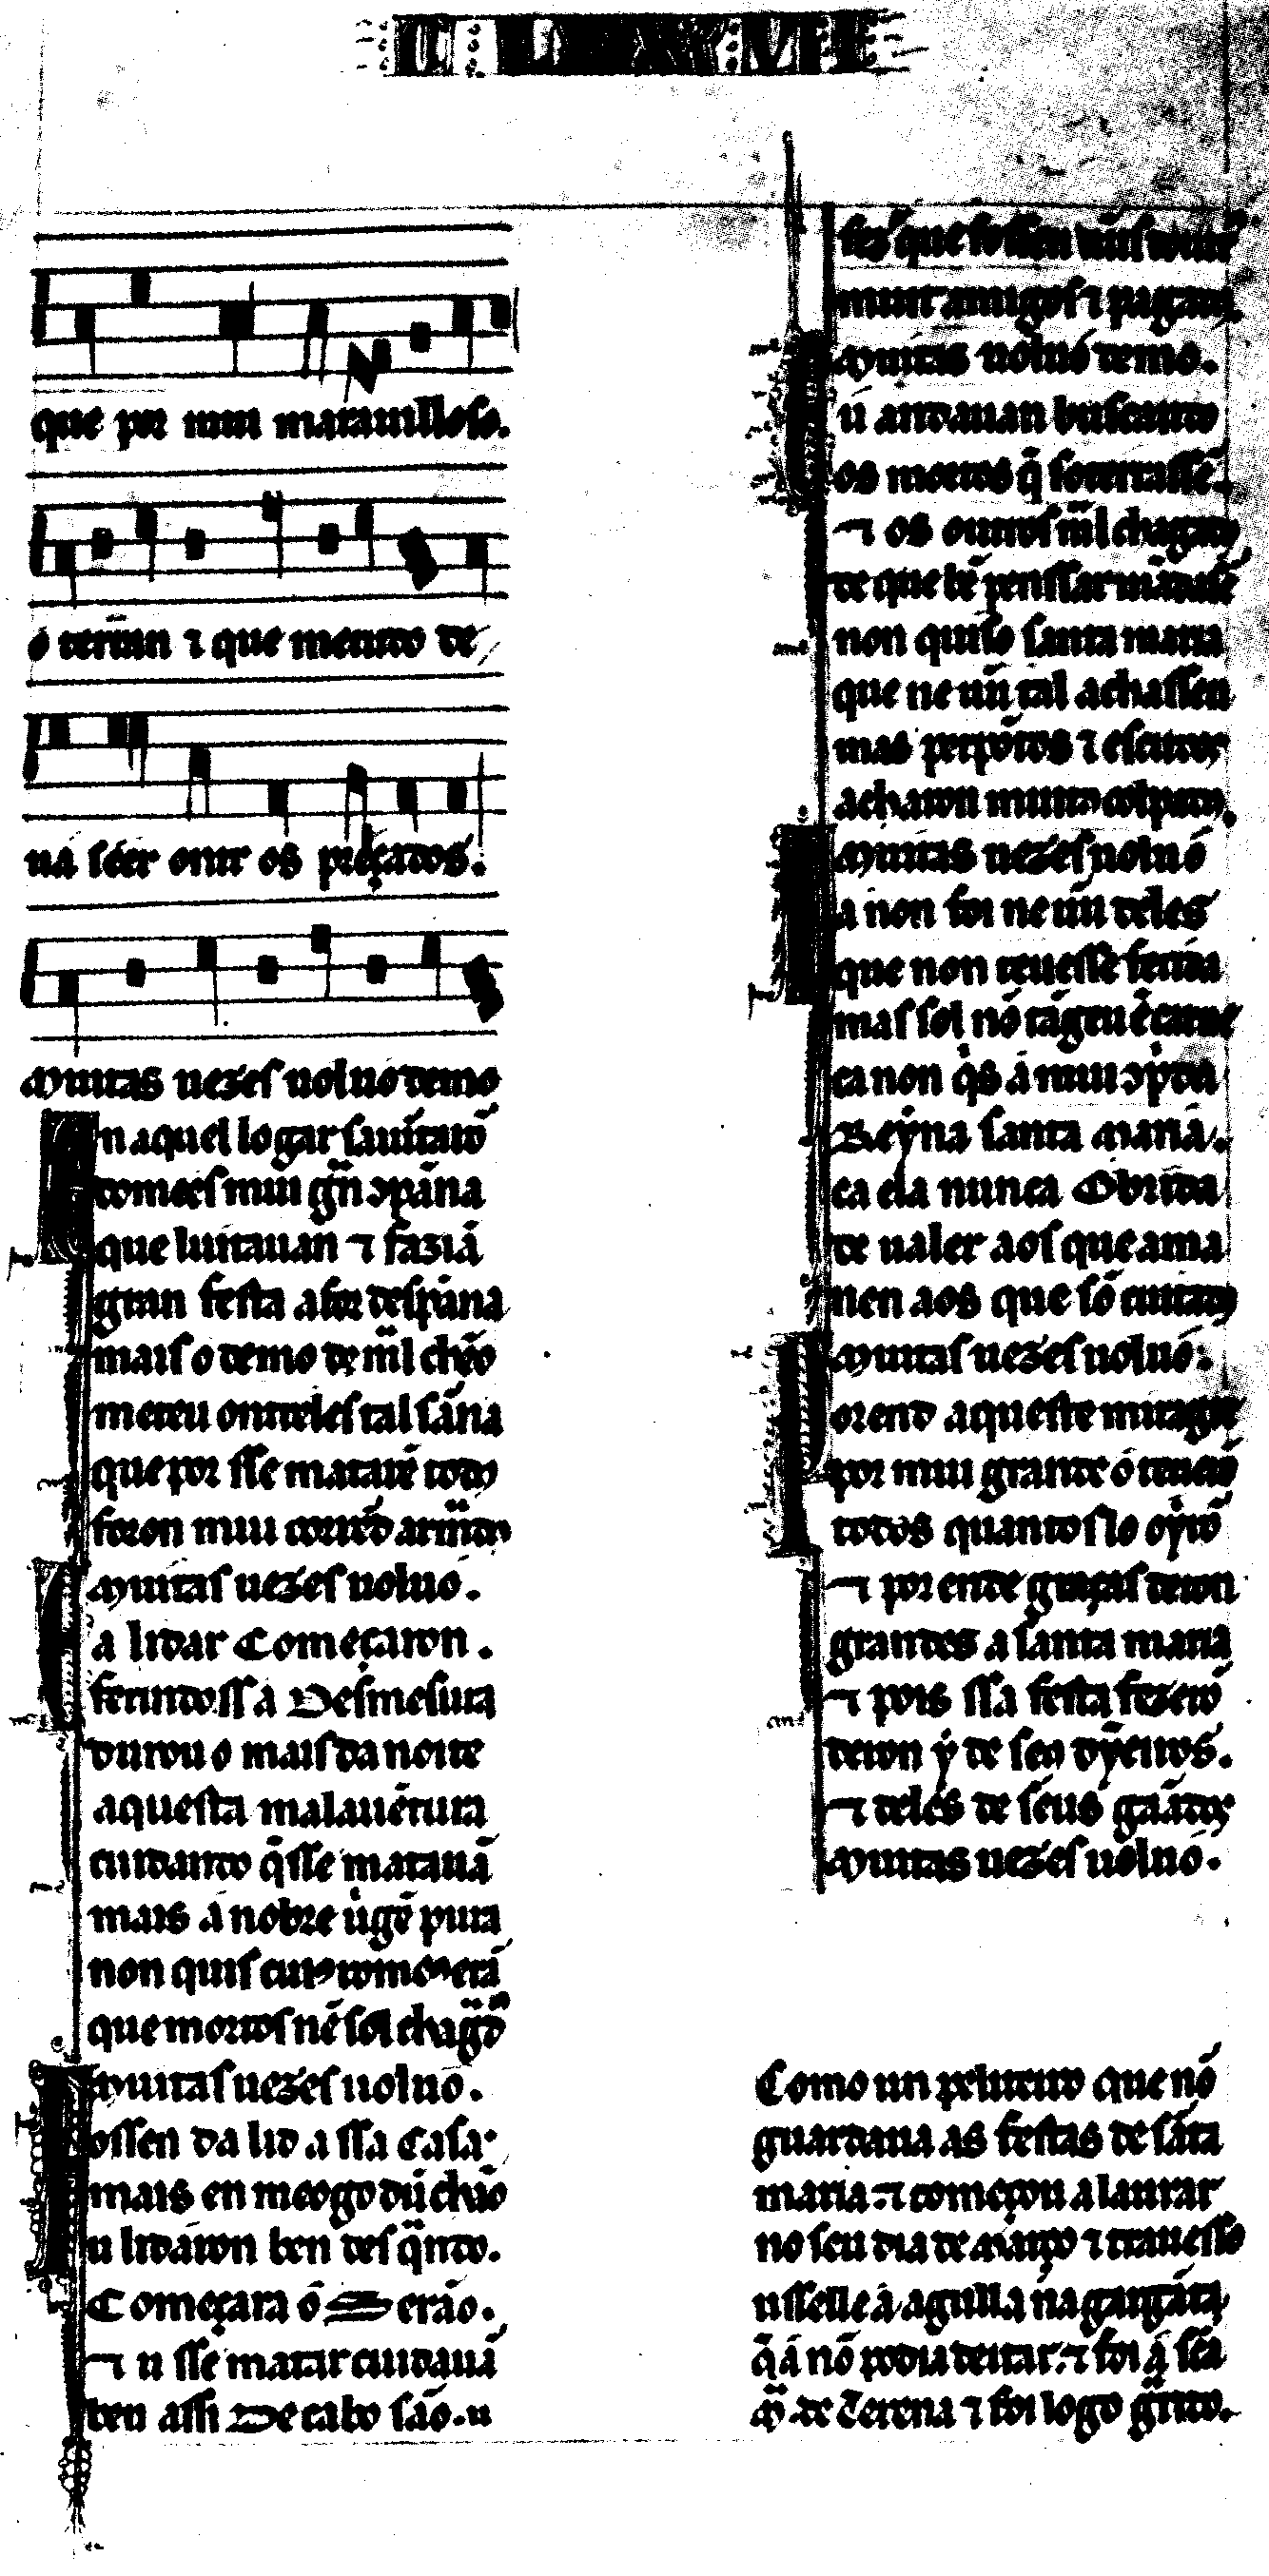 que por muu marauilloso.
o terran ⁊ que metudo de
uā séer ontr os preçados.
Muitas uezes uoluo demo
n aquel logar
que luitauan ⁊ fazıā
gran festa a for despāna
mais o demo de mal chēo
meteu ontreles tal sāna
que por sse matarē todos
foron muu
Muitas uezes uoluo.
a lidar Começaron.
ferindoss a Desmesura
durou o mais da noite
aquesta malauētura
cuidando q̄ sse matauā
mais á nobre uirgē pura
non quis
que mortos nē sol chagad
Muitas uezes uoluo.
ossen da lid a ssa Casa
mais en meogo dū chāo
u lidáron ben des q̄ndo.
Começara ó serāo.
⁊ u sse matar cuidauā
ben assi De cabo sāo. u
fez que fossen
muit amigos ⁊ pagados.
Muitas uoluo demo.
u andauan buscando
os mortos q̄ soterrassē.
⁊ os outros mal chagados
de que bē penssar mādassē
non quiso santa maria
que ne ūu tal achassen
mas perpōtos ⁊ escudos
acharon muito colpados.
Muitas uezes uoluo
a non foi ne ūu deles
que non teuesse ferida
mas sol nō tāgeu ē carne
ca non q̇s á muu
Reyna santa Maria.
ca ela nunca Obrida
de ualer aos que ama
nen aos que sō cuitados
Muitas uezes uoluo.
orend aqueste miragre
por muu grande ó teuerō
todos quantos lo oyrō
⁊ por ende graças deron
grandes a santa maria
⁊ pois ssa festa fezerō
deron y de seus dȳeiros.
⁊ deles de séus gāados
Muitas uezes uoluo.
Como un que nō
guardaua as festas de sāta
maria. ⁊ começou a laurar
no seu dia de Março ⁊ trauesso
usselle á agulla na gargāta
q̄ á nō podia deitar. ⁊ foi á sēa
M̄ de Terena ⁊ foi logo